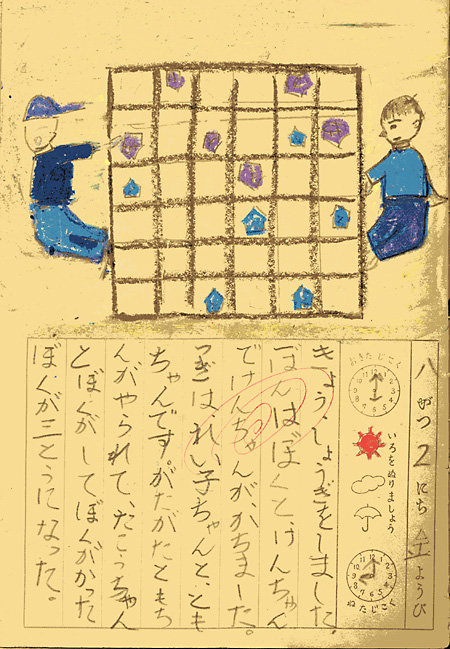 八がつ2にち土ようび
おきたじこく
いろをぬりましょう
ねたじこく
きょう、しょうぎをしました。
ぼんはぼくと、けんちゃん
でけんちゃんがかちました。
つぎはれい子ちゃんと、とも
ちゃんです。がたがたともち
んがやられて、たこっちゃん
とぼくがしてぼくがかった
ぼくが三とうになった。